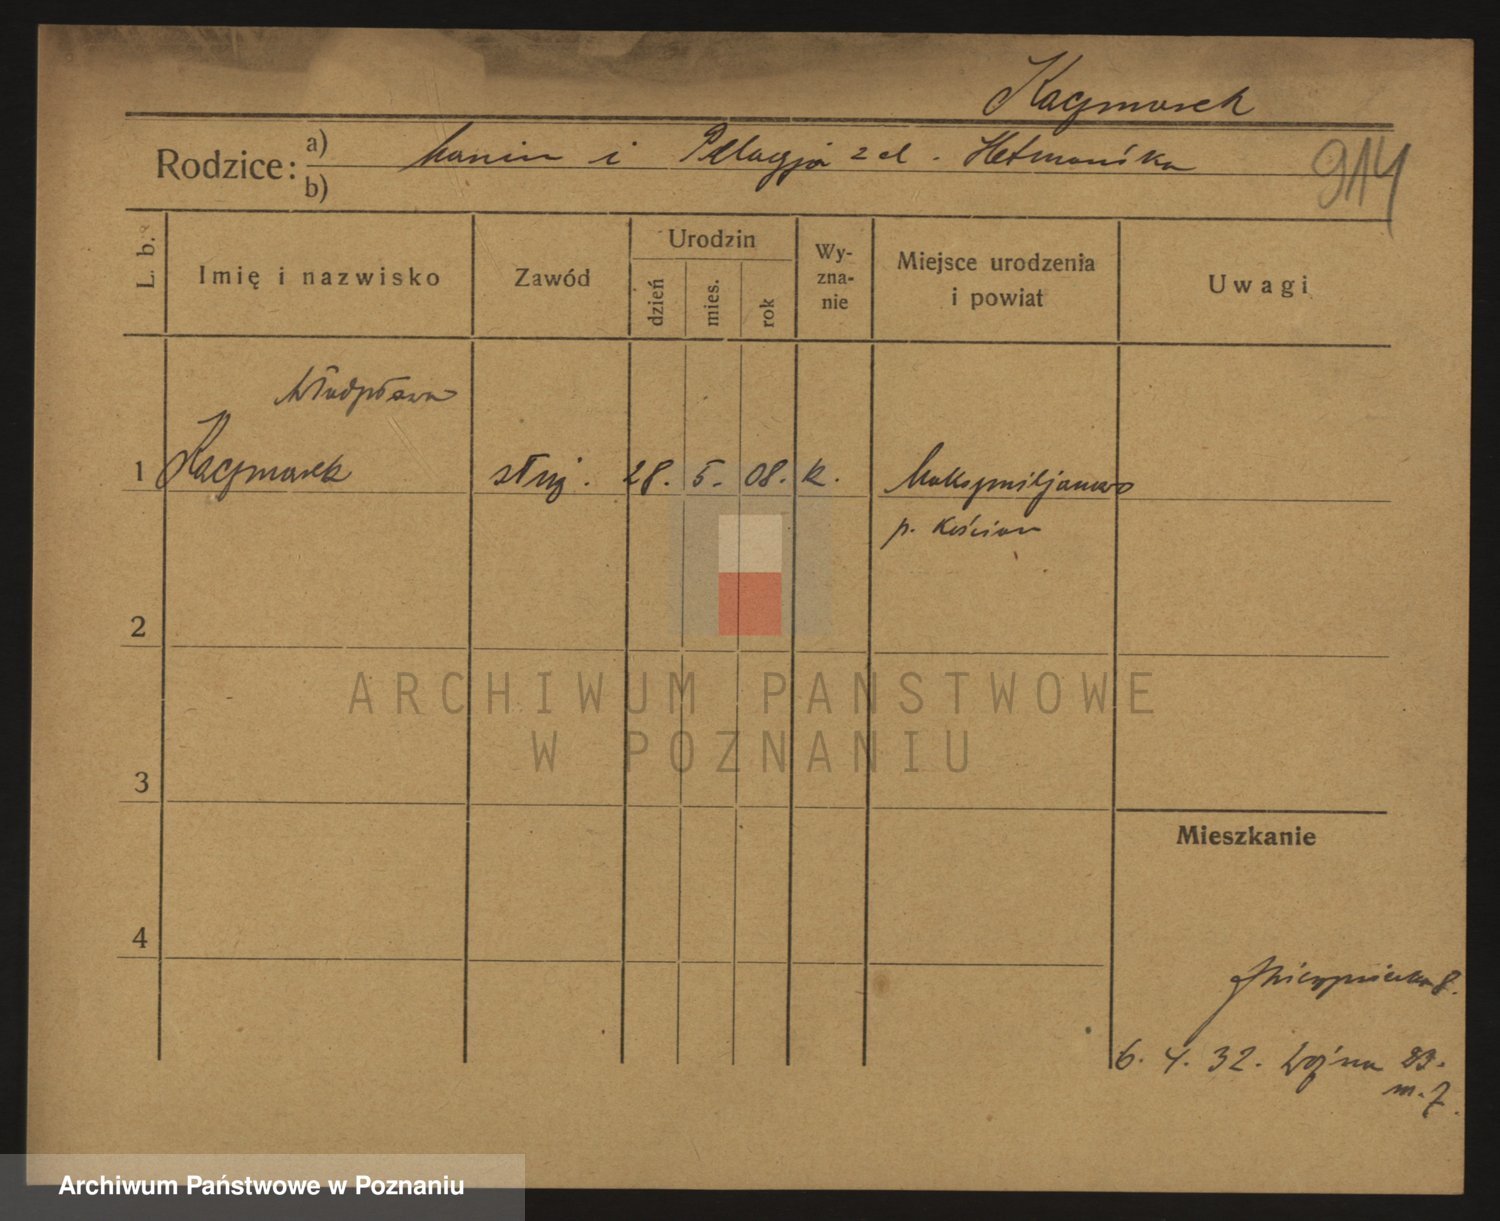 Kaczmarek
Rodzice: a) Marcin i Pelagja z d. Hetmańska
b)
914
L. b. Imię i nazwisko Zawód Urodzin dzień mies. rok Wy-zna-nie Miejsce urodzenia i powiat Uwagi
Władysława
1 Kaczmarek służ. 28. 5. 08. k. Maksymiljanowo
p. Kościan
2
ARCHIWUM PAŃSTWOWE
W POZNANIU
3
Mieszkanie
4
8.
6. 4. 32. 23.
m. 7.
Archiwum Państwowe w Poznaniu